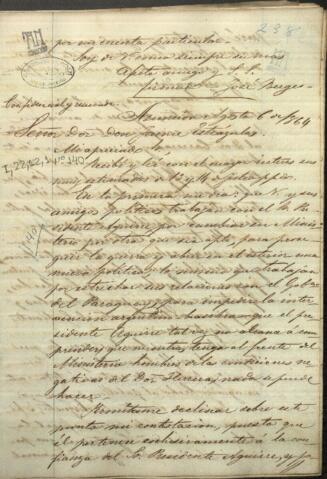 238
por mi cuenta particular.
Soy de V. como siempre su mas
afecto amigo y S. S.
firmado José Berges
Confidencial y reservada
Asuncion Agosto 6 de 1864
Señor Dor Don Jaime Estrázulas
Mi apreciado
I, 22, 12, 1, nº 140
Recibí y leí con el mayor interes sus
muy estimadas de 1º y 14 de
En la primera me dice que V. y sus
amigos politicos trabajan con el Sr. Pre
sidente Aguirre por cambiar su Minis
terio por otro que sea apto, para prose
guir la guerra y abrir en el exterior una
nueva politica: lo mismo que trabajan
por estrechar sus relaciones con el Gobno
del Paraguay, y para impedir la inter
vencion argentina hasta aquí el pre
sidente Aguirre tal vez no alcanza á com
prender, que mientras tenga al frente del
Ministerio hombres de las condiciones ne
gativas del Dor Herrera, nada se puede
hacer.
Permítame declinar sobre este
punto mi contestacion, puesto que
él pertenece esclusivamente á la con
fianza del Sr. Presidente Aguirre, y por